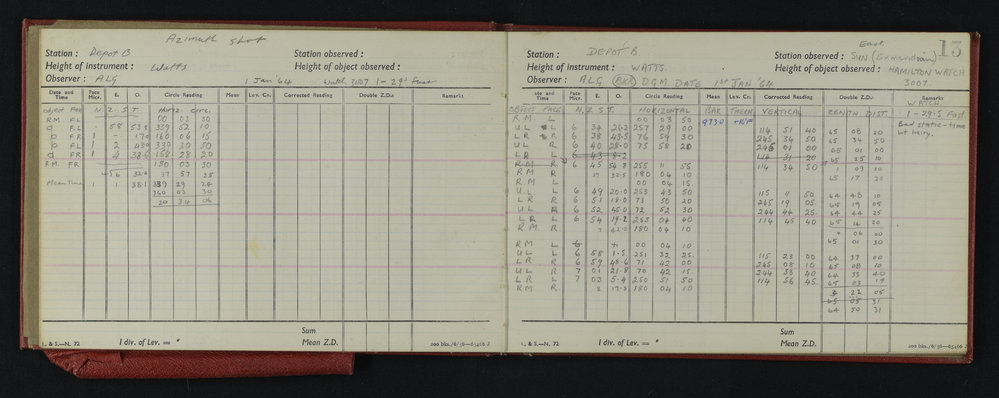 Azimuth Shot
Station : Depot B
Station observed :
Height of instrument : Watts
Height of object observed :
Observer : ALG
1 Jan '64 Watch 3007 1-29.1 Fast
Date and Time Face Micr. E. O. Circle Reading Mean Lev. Cn. Corrected Reading Double Z.D. Remarks
Object Face N.Z.S.T. Horiz Circ.
RM FL 00 03 30
FL 58 53.8 359 52 10
FR 1 - 17.0 160 06 15
FL 1 2 339 30 50
FR 1 4 38.6 159 28 20
R.M. FR 180 03 30
37 57 35
Mean Time 1 1 38.1 339 29 24
03 30
20 34 06
Sum
1 div. of Lev. = " Mean Z.D.
L. & S.—N. 72
200 bks./6/56—65466 J
13
Station : DEPOT B
East
Station observed : SUN
Height of instrument : WATTS.
Height of object observed : HAMILTON WATCH
Observer : ALG DGM DATE 1st JAN '64
3007
Date and Time Face Micr. E. O. Circle Reading Mean Lev. Cn. Corrected Reading Double Z.D. Remarks
OBJECT FACE N.Z.S.T. HORIZONTAL BAR THERM VERTICAL ZENITH DIST. WATCH
R M L 00 03 50 9730 1-29.5 Fast.
UL L 6 34 26.2 257 29 00 114 51 40 65 08 20 Bad static-time
LR R 6 38 43.5 76 54 30 245 34 50 65 34 50
UL R 6 40 28.0 75 58 20 245 01 00 65 01 00
LR L 6 43 114 31 20 65 25 10
RM R 6 45 255 11 55 114 34 50
RM R 32.5 180 04 10 65 17 20
RM L 00 04 15
UL L 6 49 20.0 253 43 50 115 11 50 64 48 10
LR R 6 51 18.0 73 50 20 245 19 05 65 19 05
UL R 6 52 45.0 72 52 30 244 44 25 64 44 25
LR L 6 54 19.2 253 04 40 114 45 40 65 14 20
RM R 180 04 10
65 01 30
RM L 00 04 10
UL L 6 58 1.5 251 32 25 115 23 00 64 37 00
LR R 6 59 48.6 71 42 00 245 08 10 65 08 10
UL R 7 01 21.8 70 42 15 244 33 40 64 33 40
LR L 7 03 5.4 250 51 50 114 56 45 65 03 15
RM R 180 04 10 22 05
65 05 31
64 50 31
Sum
1 div. of Lev. = " Mean Z.D.
L. & S.—N. 72
200 bks./6/56—65466 J